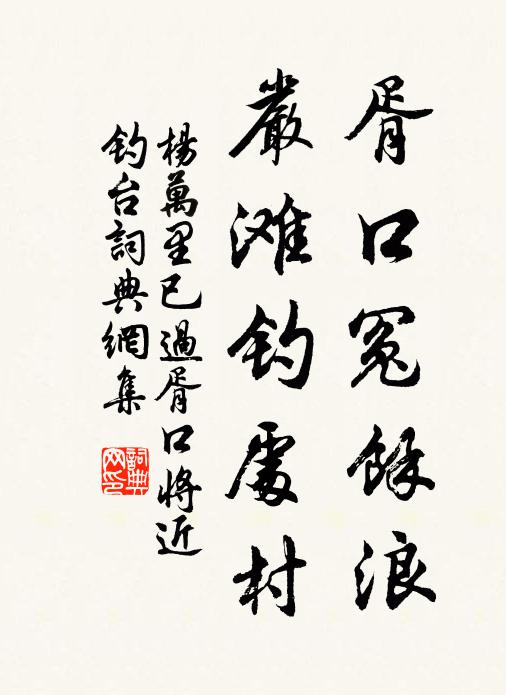 胥口冤餘浪
嚴滩釣處村
楊萬里已過胥口將近
釣台詞典網集
詞典网印